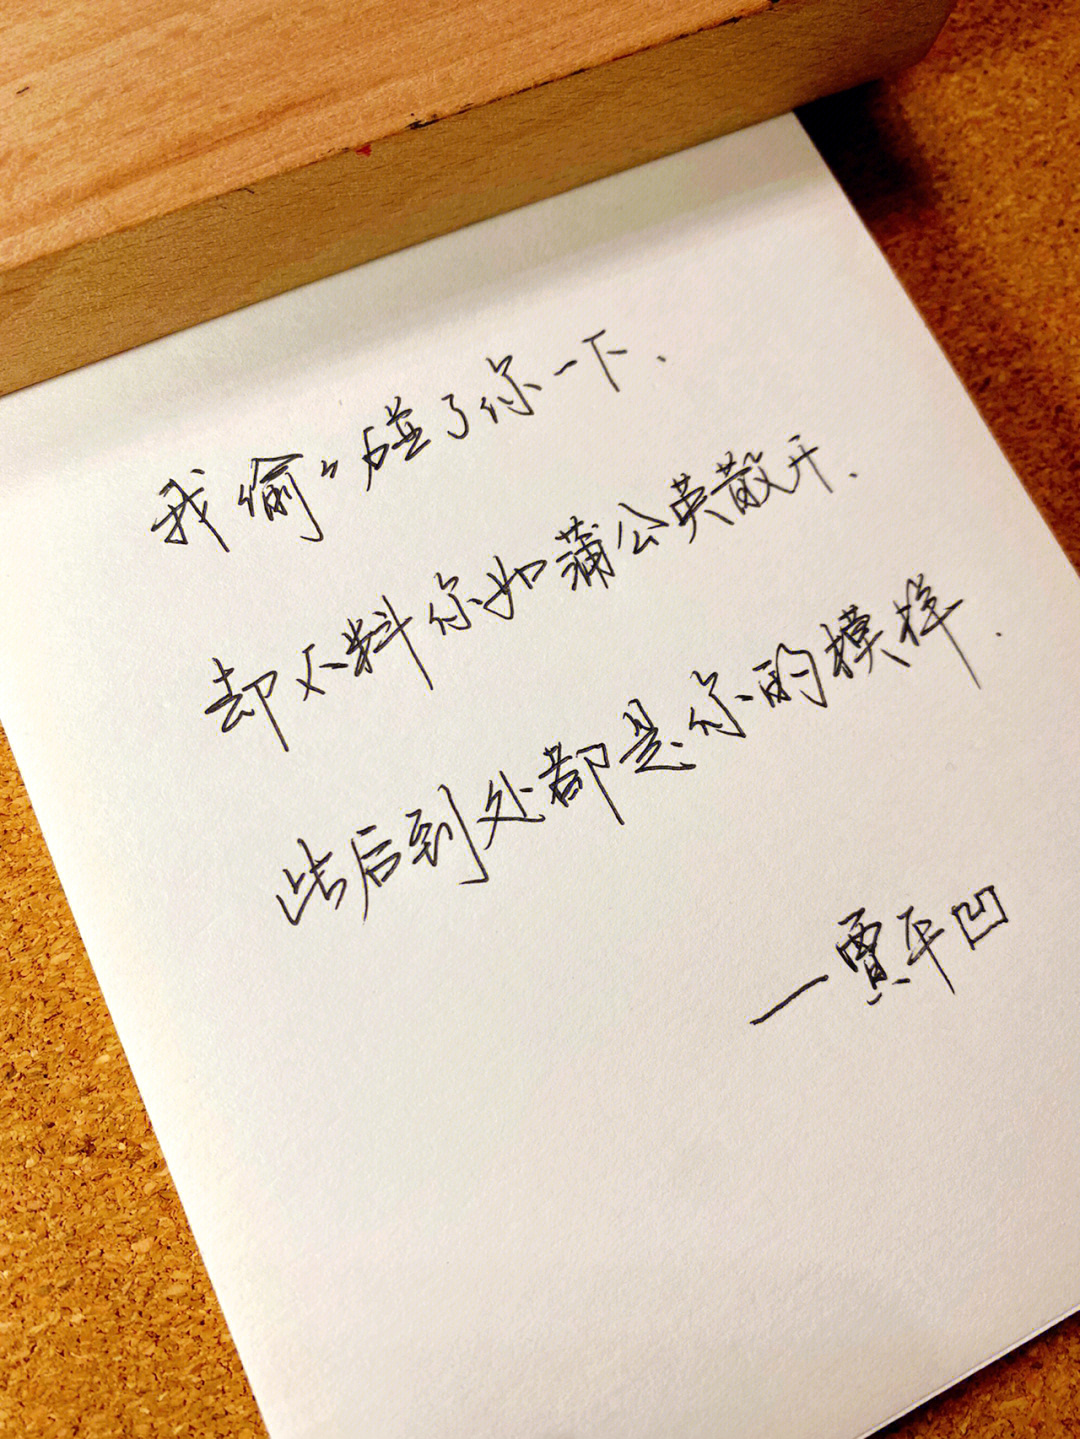 我偷々碰了你一下、
却不料你如蒲公英散开、
此后到处都是你的模样.
—贾平凹